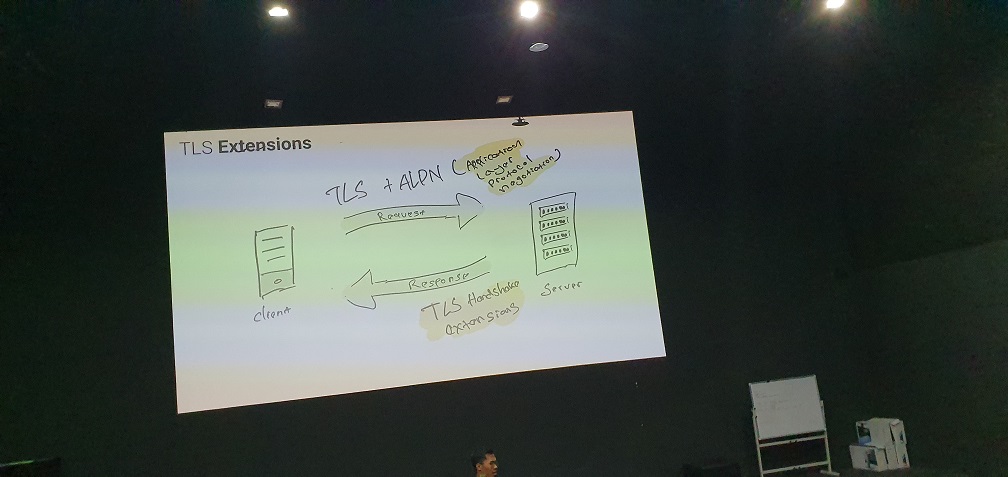 TLS Extensions
TLS + ALPN (Application
Layer
Protocol
negotiation)
Request
Response
client
Server
TLS Handshake
extensions